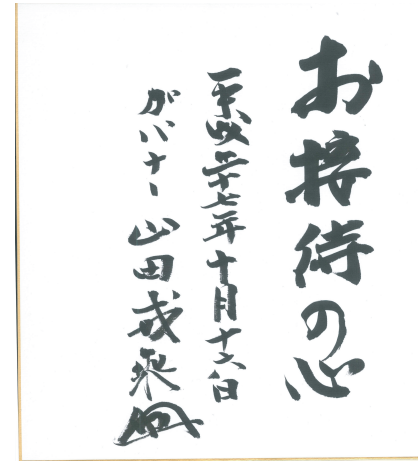 お接待の心
平成二十七年十月十六日
ガバナー 山田